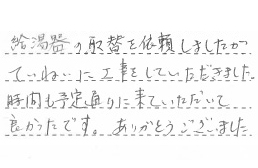 給湯器の取替を依頼しましたが
ていねいに工事をしていただきました
時間も予定通りに来ていただいて
良かったです。ありがとうございました